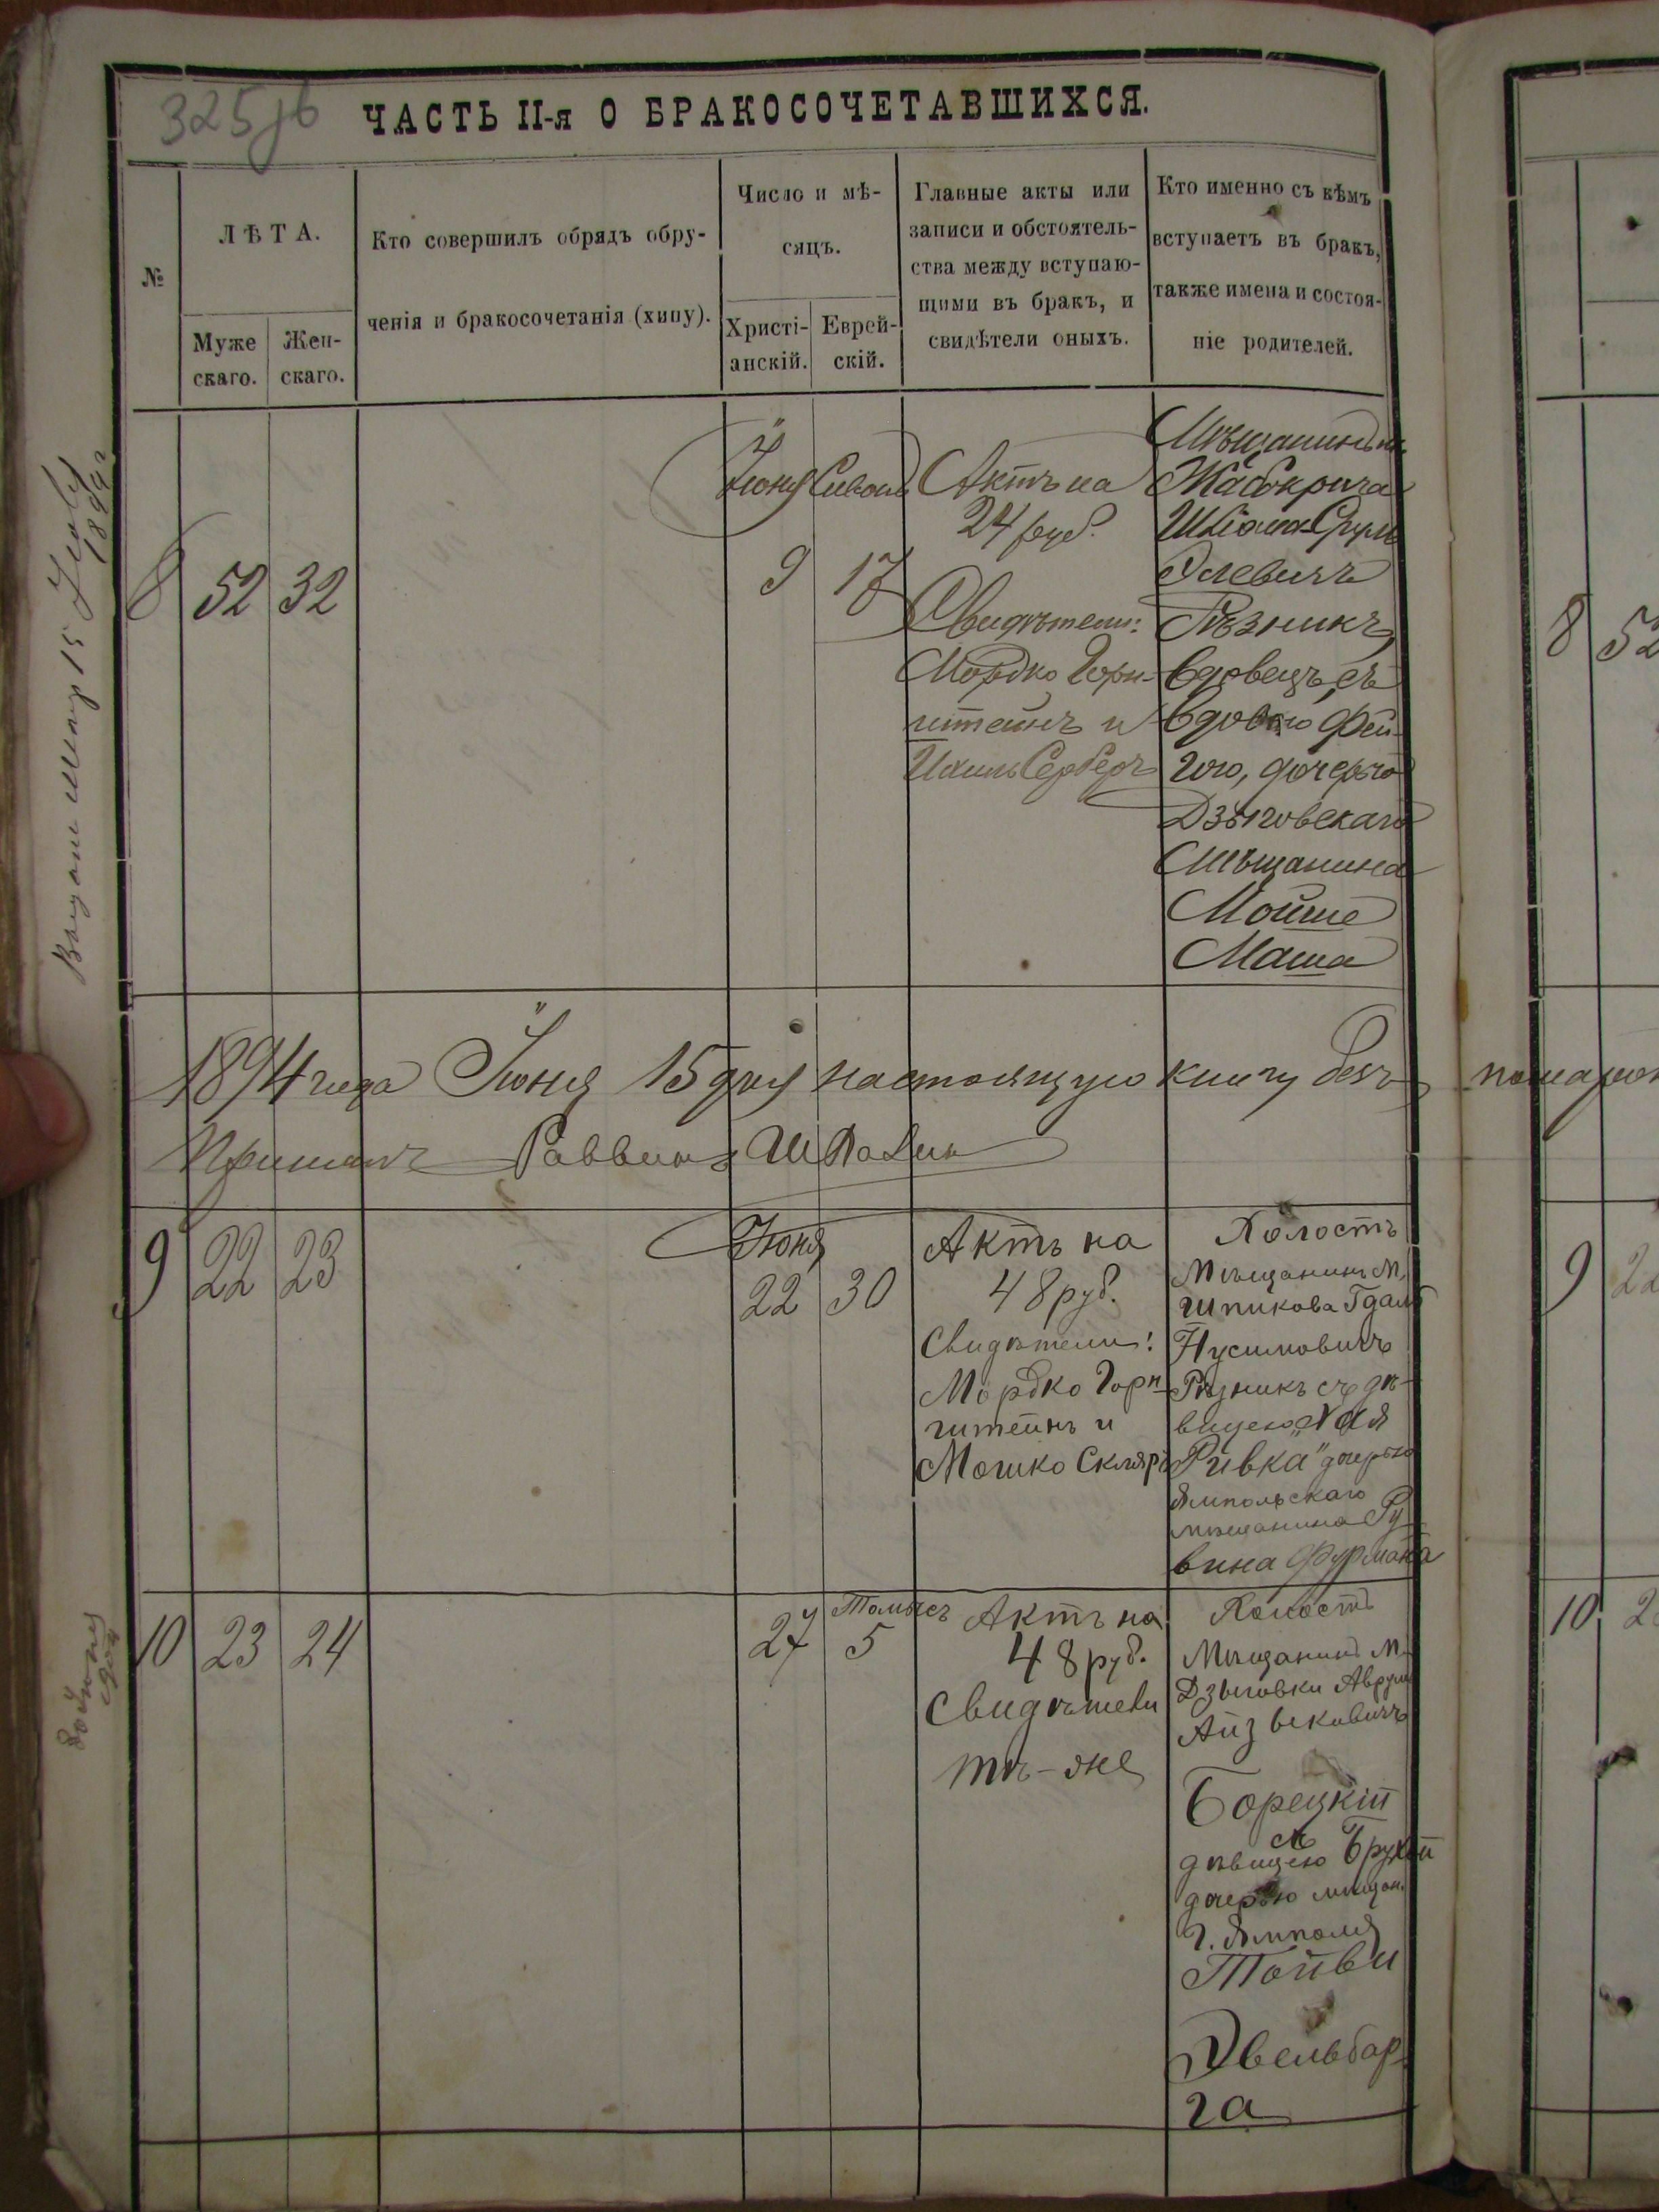 325
ЧАСТЬ II-я О БРАКОСОЧЕТАВШИХСЯ.
№
ЛѢТА.
Муже
скаго.
Жен-
скаго.
Кто совершилъ обрядъ обру-
ченія и бракосочетанія (хипу).
Число и мѣ-
сяцъ.
Христі-
анскій.
Еврей-
скій.
Главные акты или
записи и обстоятель-
ства между вступаю-
щими въ бракъ, и
свидѣтели оныхъ.
Кто именно съ кѣмъ
вступаетъ въ бракъ,
также имена и состоя-
ніе родителей.
8
52
32
Іюня
9
Сивонъ
17
Актъ на
24 руб.
Свидѣтели:
Мордко Горн-
штейнъ и
Ихиль Серберъ
Мѣщанинъ м.
Жабокрича
Шліома Сруль
Элевичъ
Рѣзникъ,
вдовецъ, съ
вдовою Фей-
гою, дочерью
Дзыговскаго
Мѣщанина
Мойше
Маша
1894 года Іюня 15 дня настоящую книгу безъ помарок
Принялъ Раввинъ
9
22
23
Іюня
22
30
Актъ на
48 руб.
Свидѣтели:
Мордко Горн-
штейнъ и
Мошко Скляръ
Холостъ
Мѣщанинъ м.
Шпикова Гдаль
Нусимовичъ
Рѣзникъ съ дѣ-
вицею
"Ривка" дочерью
Ямпольскаго
мѣщанина Ру-
вина Фурмана
10
23
24
27
Тамызъ
5
Актъ на
48 руб.
Свидѣтели
тѣ-же
Холостъ
Мѣщанинъ м.
Дзыговки Аврум
Айзыковичъ
Борецкій
съ
дѣвицею Брухой
дочерью мѣщан.
г. Ямполя
Тойви
Эвельбар-
га
8 52
9 22
10 2